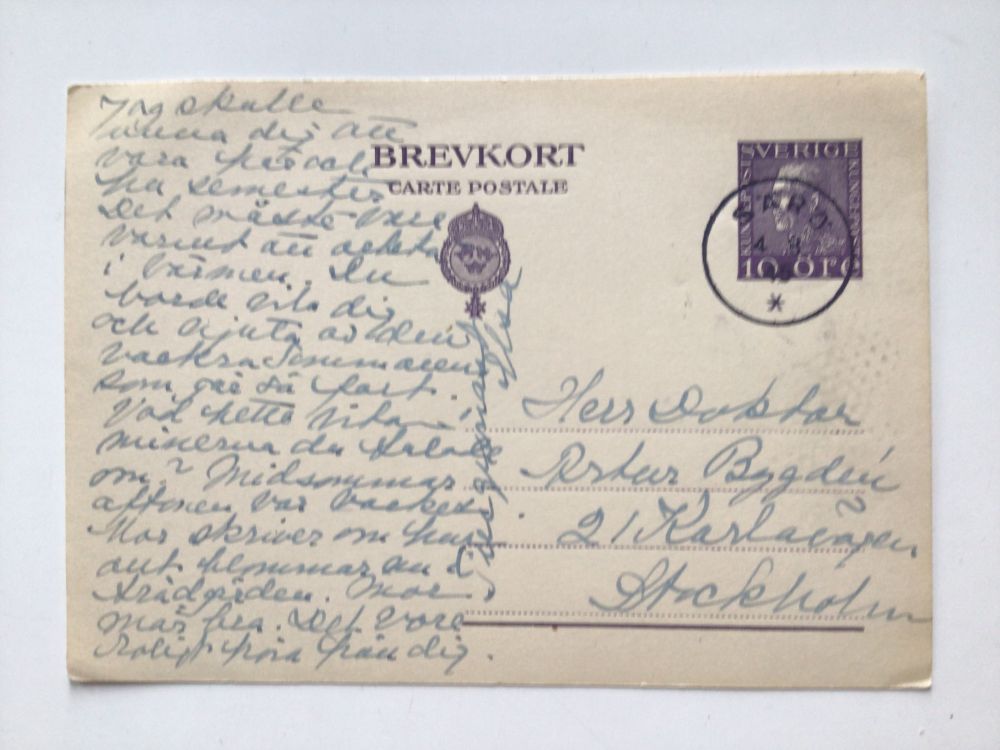 Jag skulle
unna dig att
vara
på semester
Det måste vara
varmt att arbeta
i värmen. Du
borde vila dig
och njuta av den
vackra Sommaren
som går så fort.
Vad hette vita-
minerna du talade
om? Midsommar
aftonen var vacker.
Mor skriver om hur
allt blommar nu i
trädgården. Mor
mår bra. Det vore
Roligt höra från dig.
BREVKORT
CARTE POSTALE
SVERIGE
10 ÖRE
SÄRÖ
4 8
Herr Doktor
Artur Bygdén
21 Karlavägen
Stockholm